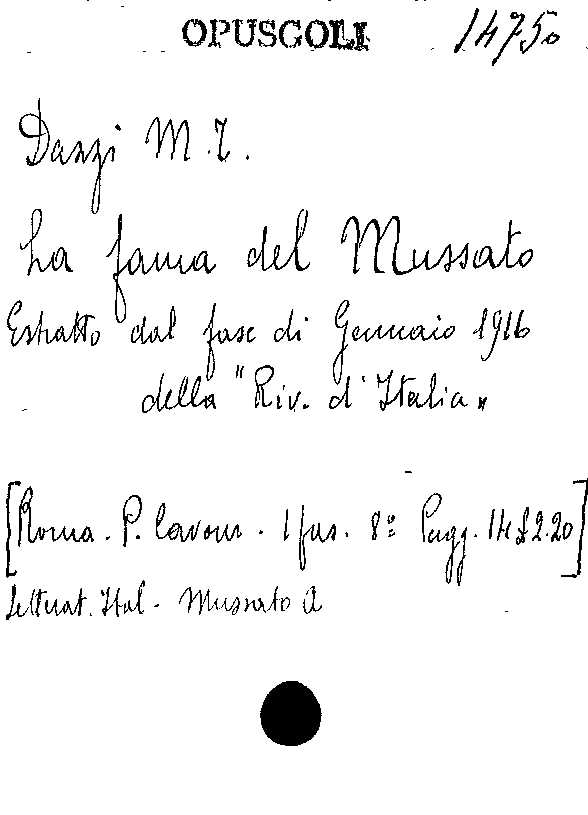 OPUSCOLI 14750
Dazzi M. T.
La fama del Mussato
Estratto dal fasc di Gennaio 1916
della "Riv. d'Italia"
[Roma. P. Cavour. 1 fas. 8º Pagg. 14 £ 2.20]
Letterat. Ital - Mussato A